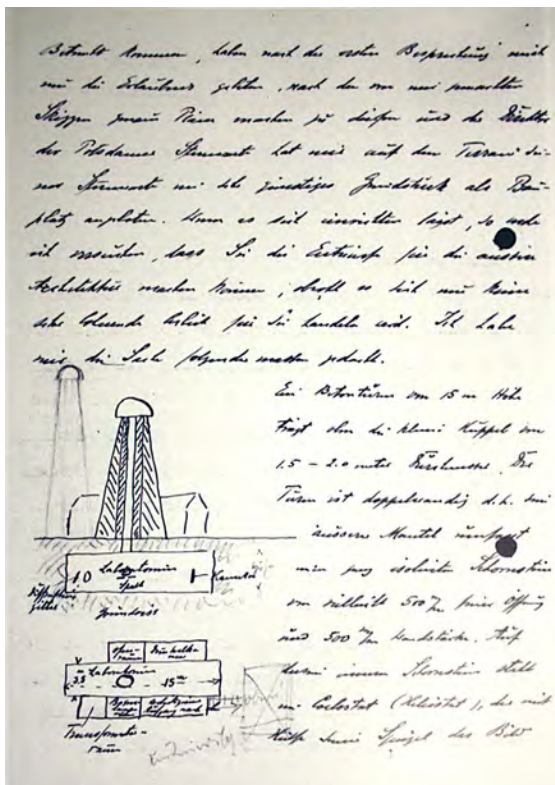 Betracht kommen, haben nach der ersten Besprechung mich
um die Erlaubnis gebeten, nach den von mir gemachten
Skizzen genau Pläne machen zu dürfen und der Direktor
der Potsdamer Sternwarte hat mir auf dem Terrain sei-
ner Sternwarte ein sehr günstiges Grundstück als Bau-
platz angeboten. Wenn es sich einrichten lässt, so werde
ich versuchen, dass Sie die Entwürfe für die äussere
Architektur machen können, obwohl es sich um keine
sehr lohnende Arbeit für Sie handeln wird. Ich habe
mir die Sache folgendermassen gedacht.
Ein Betonturm von 15 m Höhe
trägt oben die kleine Kuppel von
1.5 – 2.0 meter Durchmesser. Der
Turm ist doppelwandig d.h. ein
äussere Mantel umfasst
einen ganz isolierten Schornstein
von vielleicht 500 m/m freier Öffnung
und 500 m/m Wandstärke. Auf
diesem inneren Schornstein steht
ein Coelostat (Heliostat), der mit
Hülfe seiner Spiegel das Bild
Laboratorium
Spalt
Kamera
Grundriss
Dunkelka-
mer
Laboratorium
15 m
Transformato-
raum